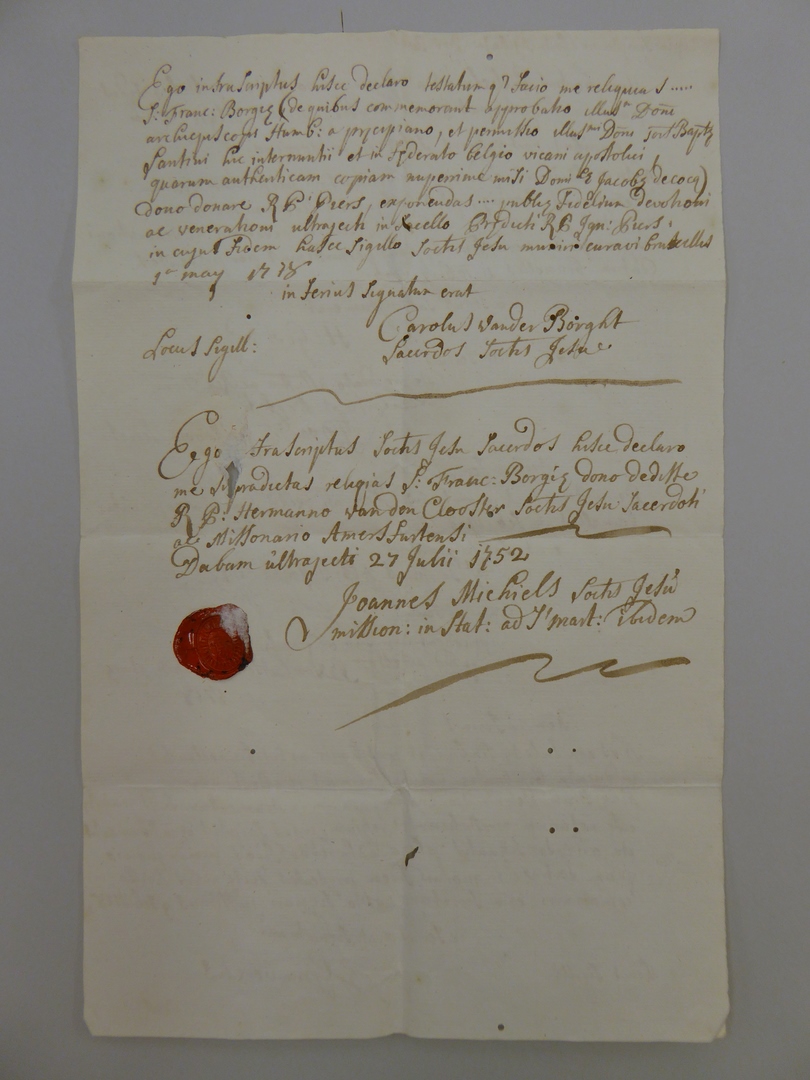 Ego infrascriptus hisce declaro testatumq3 facio me reliquias .....
S: Franc: Borgiæ (de quibus commemorant approbatio illusm Domi
archiepiscopi Humb: a præcipiano, et permissio illusmi Domi Joēs Baptæ
Santini hic internuntii et in fæderato belgio vicarii apostolici,
quarum authenticam copiam nuperrime misi Domi Jacobo de cocq)
dono donare R P Piers, exponendas ... publicæ Fidelium devotioni
ac venerationi ultrajecti in sacello Prædicti R P Ign: Piers.
in cujus Fidem hasce sigillo Soctis Jesu muniri curavi bruxellis
1a may
inferius signatum erat
Carolus vander Borght
Locus sigill:
Sacerdos Soctis Jesu
Ego frascriptus Soctis Jesu Sacerdos hisce declaro
me supradictas reliqias S: Franc: Borgiæ dono dedisse
R P: Hermanno vanden Clooster Soctis Jesu Sacerdoti
ac Missonario Amersfurtensi
Dabam ultrajecti 27 Julii 1752
Joannes Michiels Soctis Jesu
mission: in Stat: ad St mart: ibidem